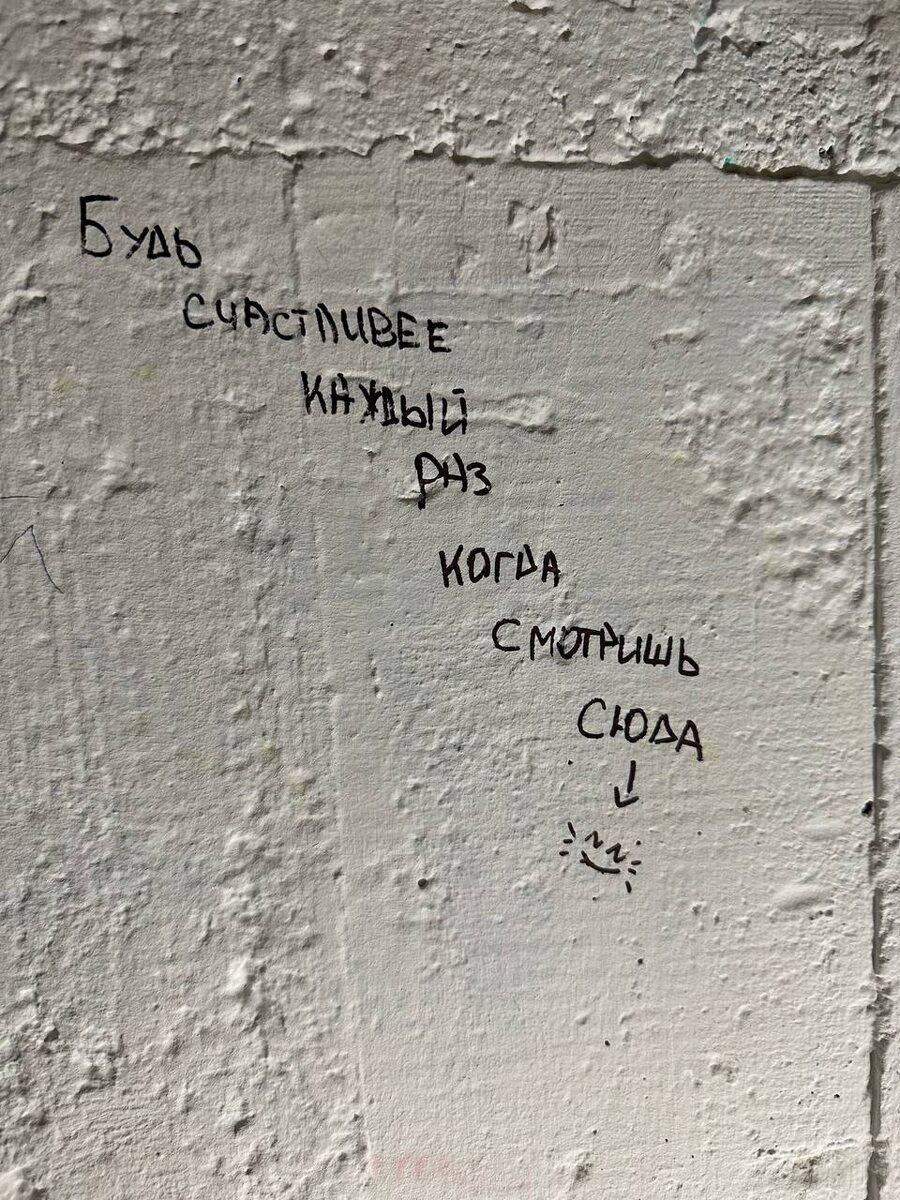 Будь
счастливее
каждый
раз
когда
смотришь
сюда